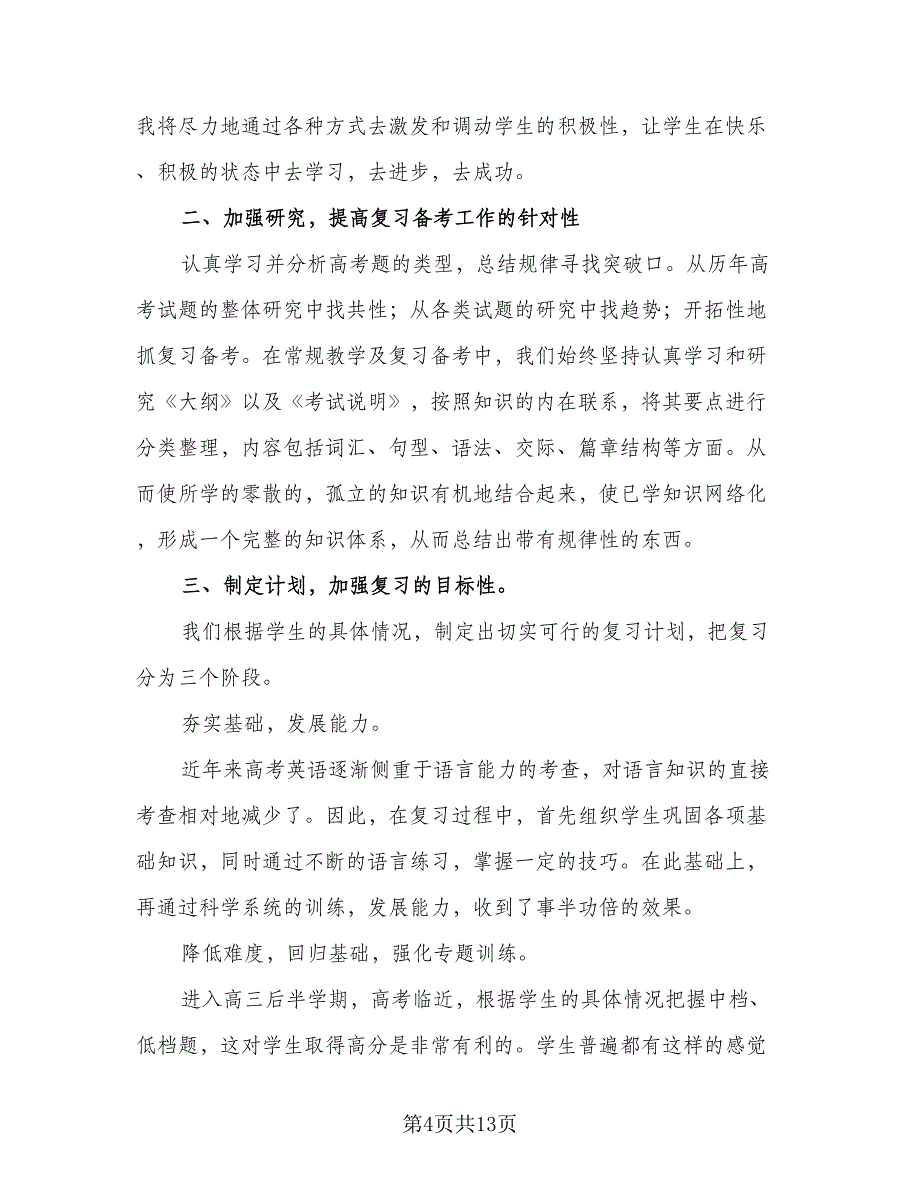 我将尽力地通过各种方式去激发和调动学生的积极性，让学生在快乐
、积极的状态中去学习，去进步，去成功。
二、加强研究，提高复习备考工作的针对性
认真学习并分析高考题的类型，总结规律寻找突破口。从历年高
考试题的整体研究中找共性；从各类试题的研究中找趋势；开拓性地
抓复习备考。在常规教学及复习备考中，我们始终坚持认真学习和研
究《大纲》以及《考试说明》，按照知识的内在联系，将其要点进行
分类整理，内容包括词汇、句型、语法、交际、篇章结构等方面。从
而使所学的零散的，孤立的知识有机地结合起来，使已学知识网络化
，形成一个完整的知识体系，从而总结出带有规律性的东西。
三、制定计划，加强复习的目标性。
我们根据学生的具体情况，制定出切实可行的复习计划，把复习
分为三个阶段。
夯实基础，发展能力。
近年来高考英语逐渐侧重于语言能力的考查，对语言知识的直接
考查相对地减少了。因此，在复习过程中，首先组织学生巩固各项基
础知识，同时通过不断的语言练习，掌握一定的技巧。在此基础上，
再通过科学系统的训练，发展能力，收到了事半功倍的效果。
降低难度，回归基础，强化专题训练。
进入高三后半学期，高考临近，根据学生的具体情况把握中档、
低档题，这对学生取得高分是非常有利的。学生普遍都有这样的感觉
第4页共13页